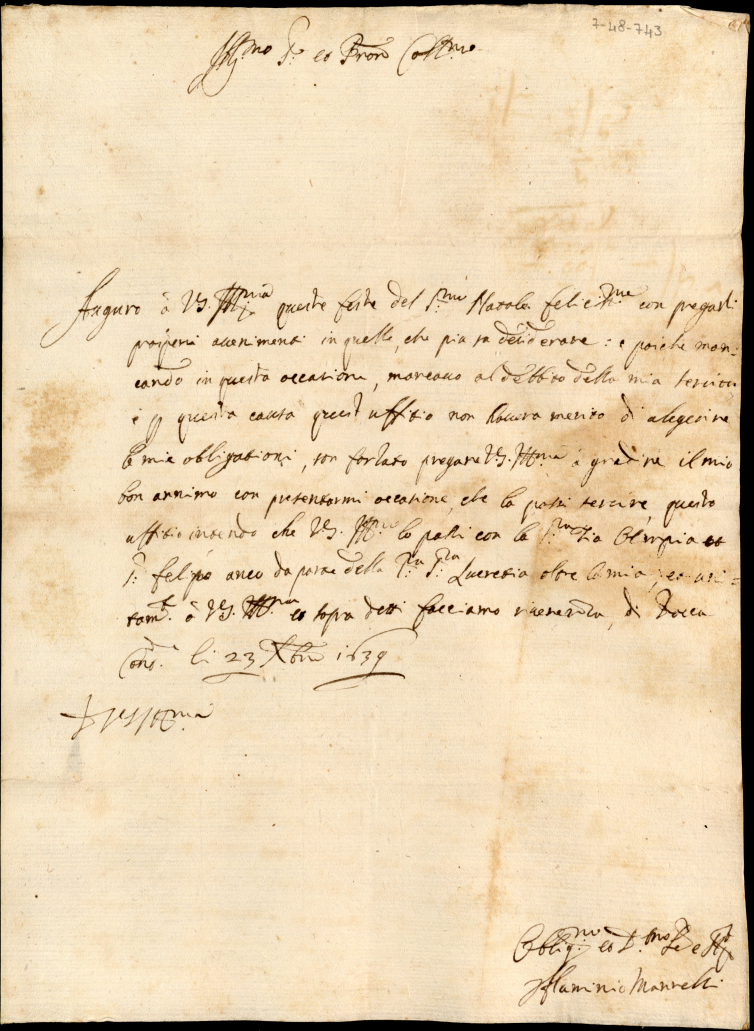 7-48-743
Ill.mo S.r et Pron Coll.mo
Auguro à V.S. Ill.ma queste feste del S.mo Natale felicis.me con pregarli
prosperi avenimenti in quello, che più sa desiderare: e poiche man-
cando in questa occasione, mancavo al debbito della mia servitù
e questa causa quest uffitio non havera merito di alegerire
le mie obligationi, son forzato pregare V.S. Ill.ma à gradire il mio
bon annimo con presentarmi occasione, che la possi servire, questo
uffitio intendo che V.S. Ill.ma lo passi con la S.ra Zia Olimpia et
S.r felippo anco da parte della S.ra S.ra Lucretia oltre la mia, et uni-
tam.te à V.S. Ill.ma et sopra detti facciamo riverenza, di Rocca
li 23 Xbre 1639
D V.S. Ill.ma
Oblig.mo et D.mo Se.re e
Flaminio Mannelli